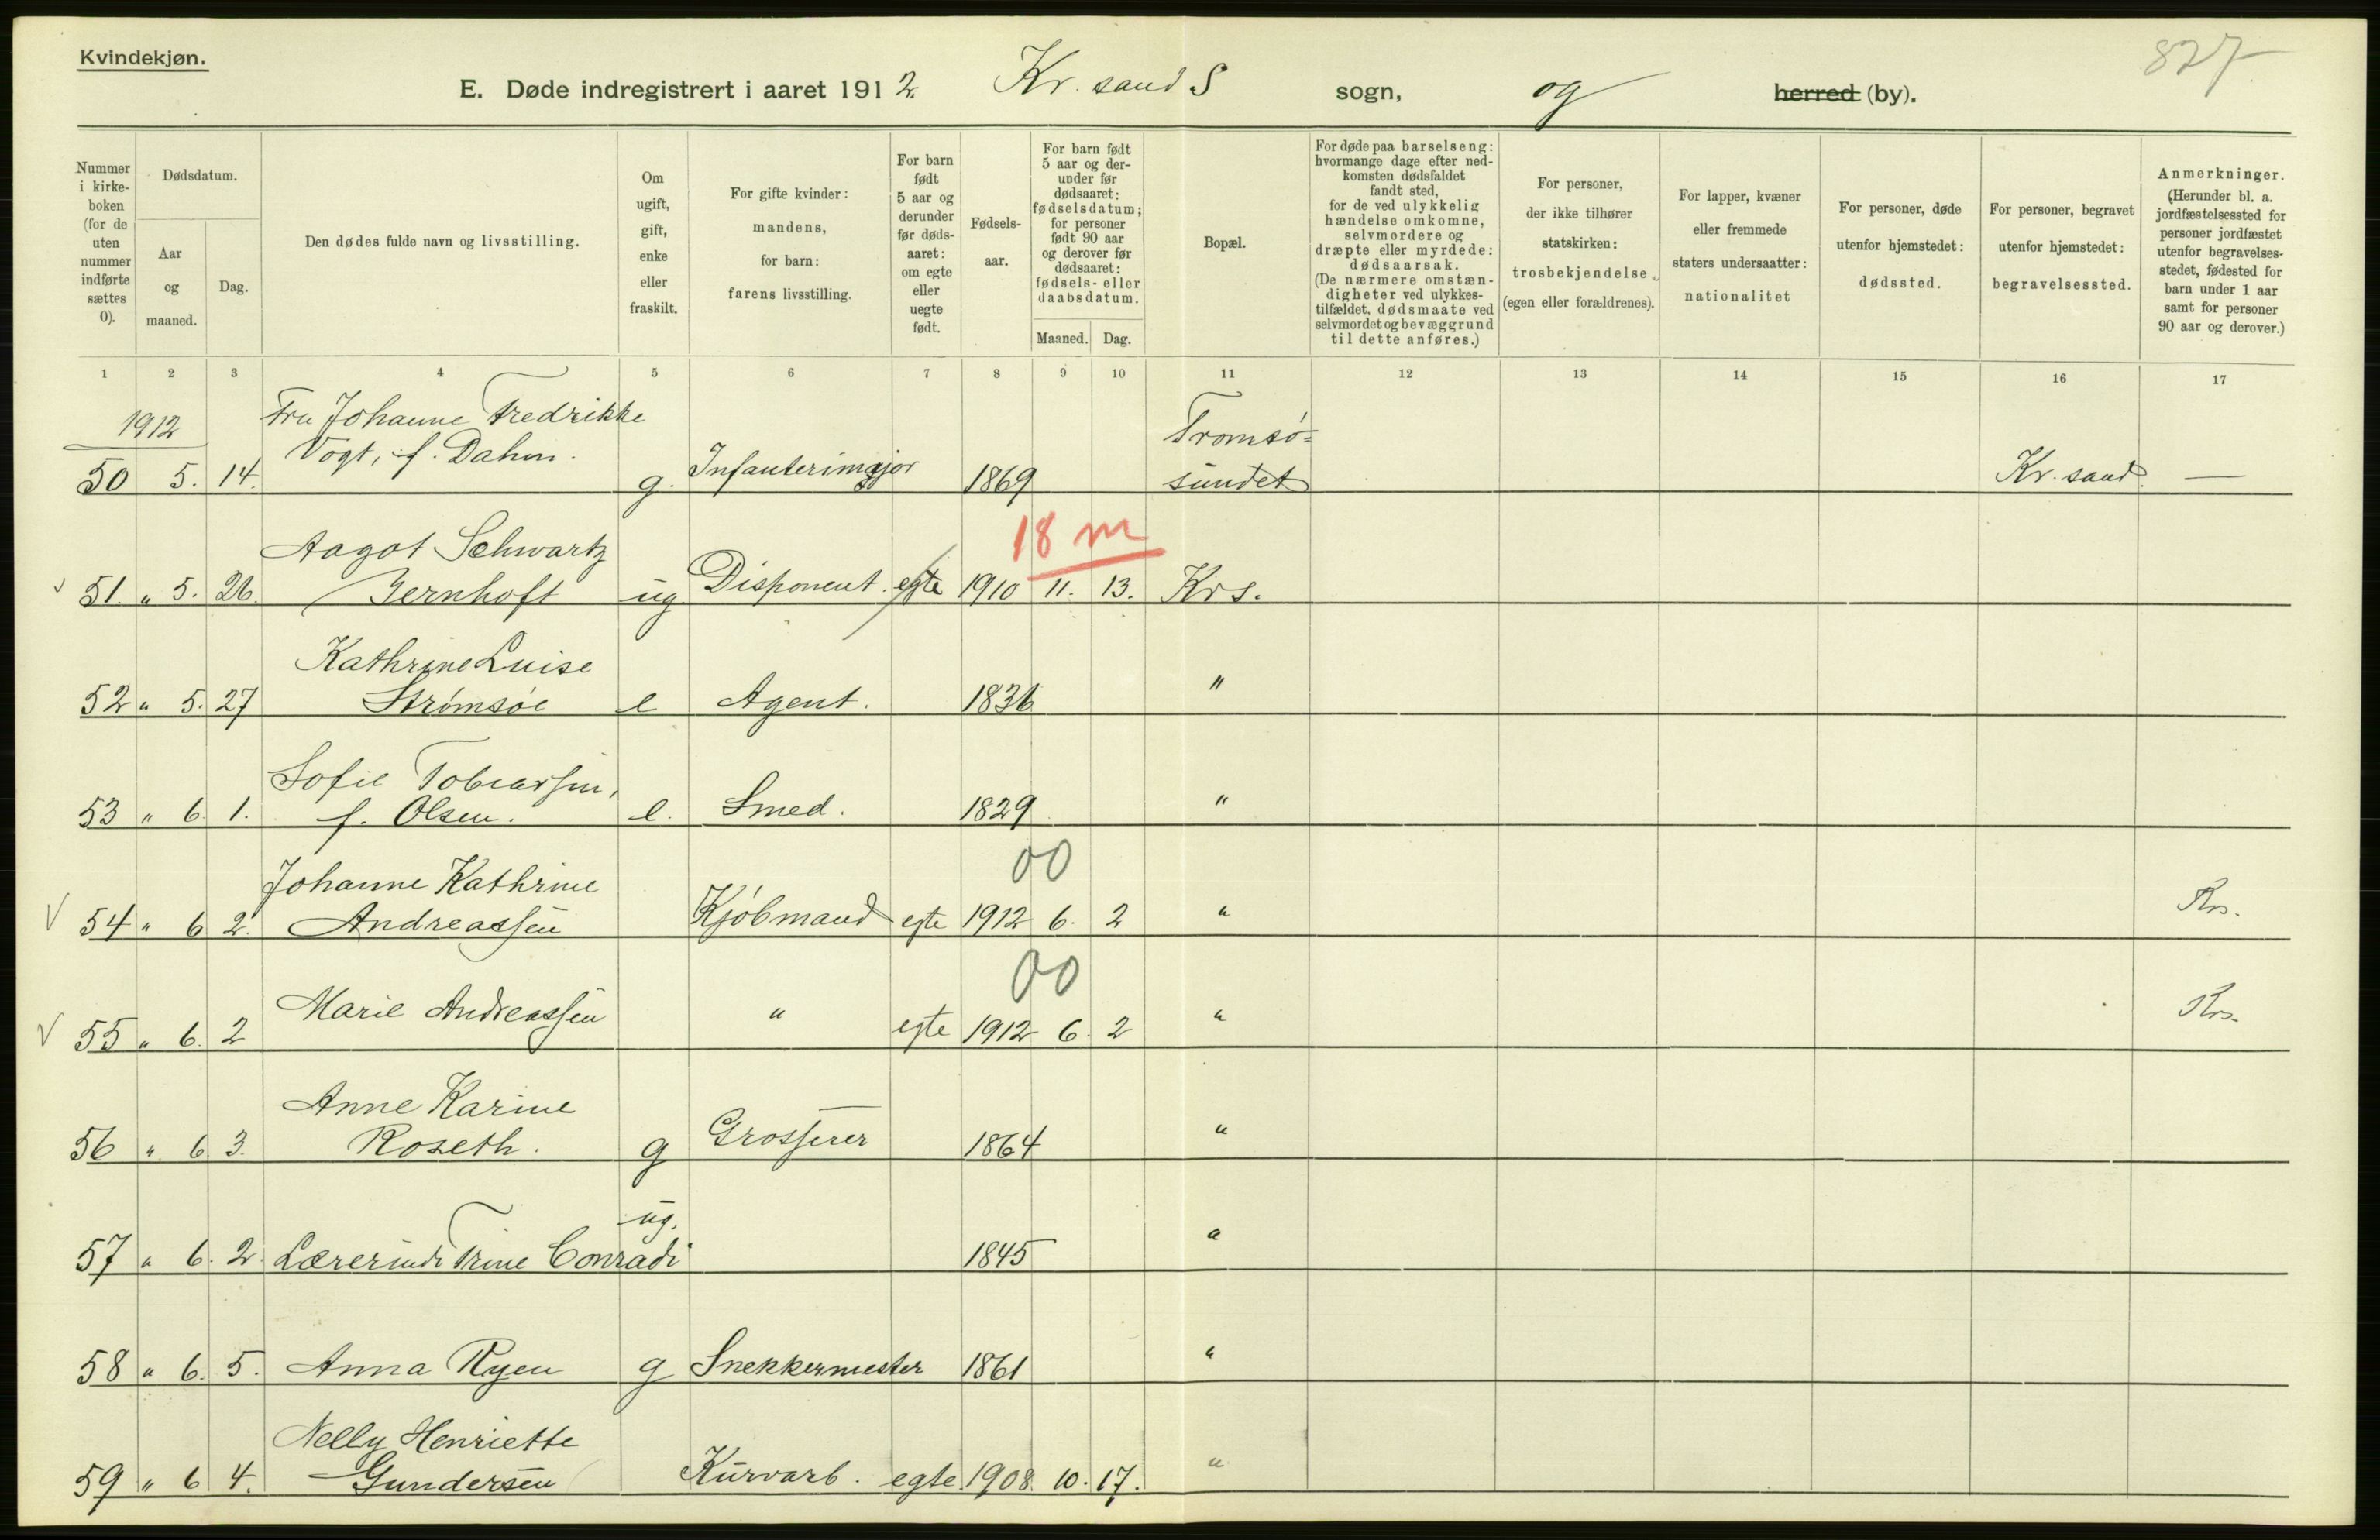 Kvindekjøn.
827
E. Døde indregistrert i aaret 1912 Kr. sand S sogn, og herred (by).
Nummer i kirke-boken (for de uten nummer indførte sættes 0).
Dødsdatum.
Aar og maaned.
Dag.
Den dødes fulde navn og livsstilling.
Om ugift, gift, enke eller fraskilt.
For gifte kvinder: mandens, for barn: farens livsstilling.
For barn født 5 aar og derunder før døds-aaret: om egte eller uegte født.
Fødsels-aar.
For barn født 5 aar og der-under før dødsaaret: fødselsdatum; for personer født 90 aar og derover før dødsaaret: fødsels- eller daabsdatum.
Maaned. Dag.
Bopæl.
For døde paa barselseng: hvormange dage efter ned-komsten dødsfaldet fandt sted, for de ved ulykkelig hændelse omkomne, selvmordere og dræpte eller myrdede: dødsaarsak. (De nærmere omstæn-digheter ved ulykkes-tilfældet, dødsmaate ved selvmordet og bevæggrund til dette anføres.)
For personer, der ikke tilhører statskirken: trosbekjendelse. (egen eller forældrenes).
For lapper, kvæner eller fremmede staters undersaatter: nationalitet
For personer, døde utenfor hjemstedet: dødssted.
For personer, begravet utenfor hjemstedet: begravelsessted.
Anmerkninger. (Herunder bl. a. jordfæstelsessted for personer jordfæstet utenfor begravelses-stedet, fødested for barn under 1 aar samt for personer 90 aar og derover.)
1 2 3 4 5 6 7 8 9 10 11 12 13 14 15 16 17
1912 Fru Johanne Fredrikke Tromsø=
50 5. 14. Vogt, f. Dahm. g. Infanterimajor 1869 sundet Kr. sand. —
18 m
Aagot Schwartz
51. " 5. 26. Jernhoft ug Disponent. egte 1910 11. 13. Krs.
Kathrine Luise
52 " 5. 27 Strømsøe e Agent. 1836 "
Sofie Tobiassen,
53 " 6 1. f. Olsen. e. Smed. 1829 "
00
Johanne Kathrine
V 54 " 6 2. Andreassen Kjøbmand egte 1912 6. 2 " Krs.
00
V 55 " 6. 2 Marie Andreassen " egte 1912 6. 2 " Krs.
Anne Karine
56 " 6 3. Roseth. g Grosserer 1864 "
ug.
57 " 6. 2. Lærerinde Trine Conradi 1845 "
58 " 6. 5. Anna Ryen g Snekkermester 1861 "
Nelly Henriette
59 " 6 4. Gundersen Kurvarb. egte 1908. 10. 17. "